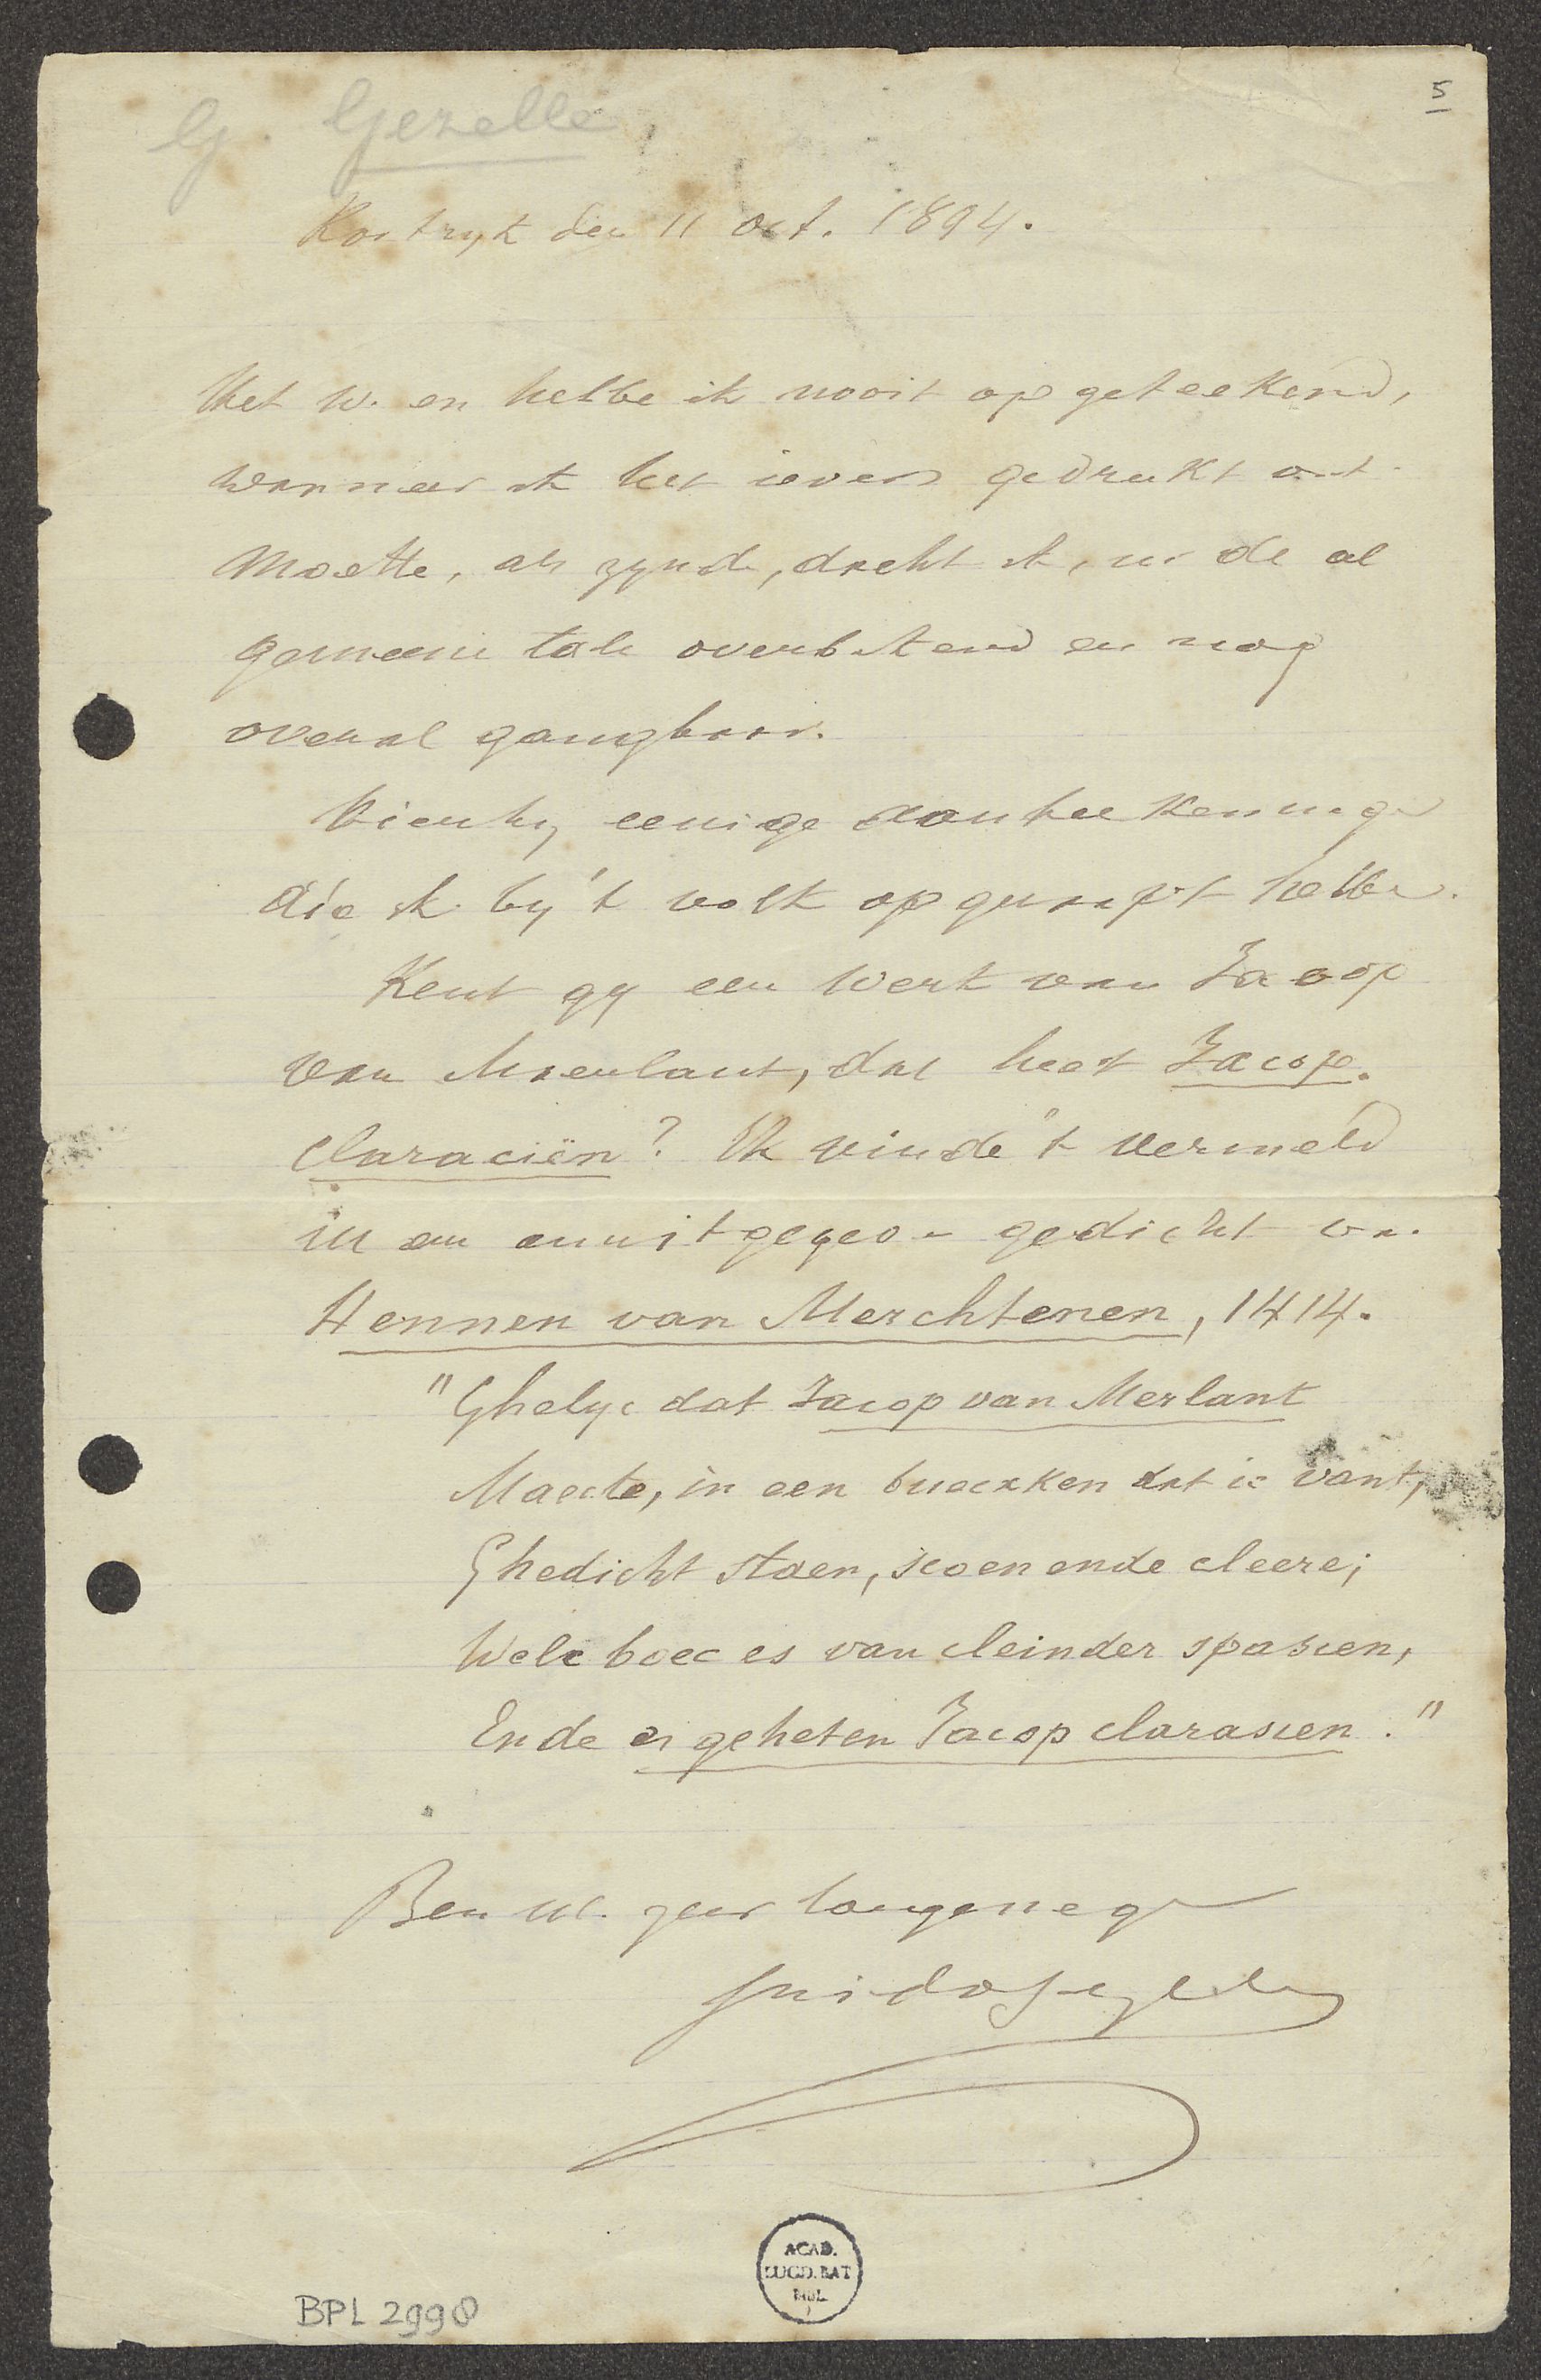 5
G. Gezelle
Kortryk den 11 oct. 1894.
Het w. en hebbe ik nooit opgeteekend,
wanneer ik het ievers gedrukt ont-
moette, als zynde, dacht ik, in de al
gemeene tale overbekend en nog
overal gangbaar.
Hierby eenige aanteekeninge
die ik by 't volk opgeraapt hebbe.
Kent gy een werk van Jacop
van Maerlant, dat heet Jacops
claraciën? Ik vinde 't vermeld
in een onuitgegeven gedicht van
Hennen van Merchtenen, 1414.
"Ghelyc dat Jacop van Merlant
Maecte, in een buecxken dat ic vant,
Ghedicht staen, scoen ende cleere;
Welc boec es van cleinder spascien,
Ende es geheten Jacop clarascien."
Ben ul. zeer toegenege
Guido Gezelle
ACAD.
LUGD. BAT
BIBL.
BPL 2998